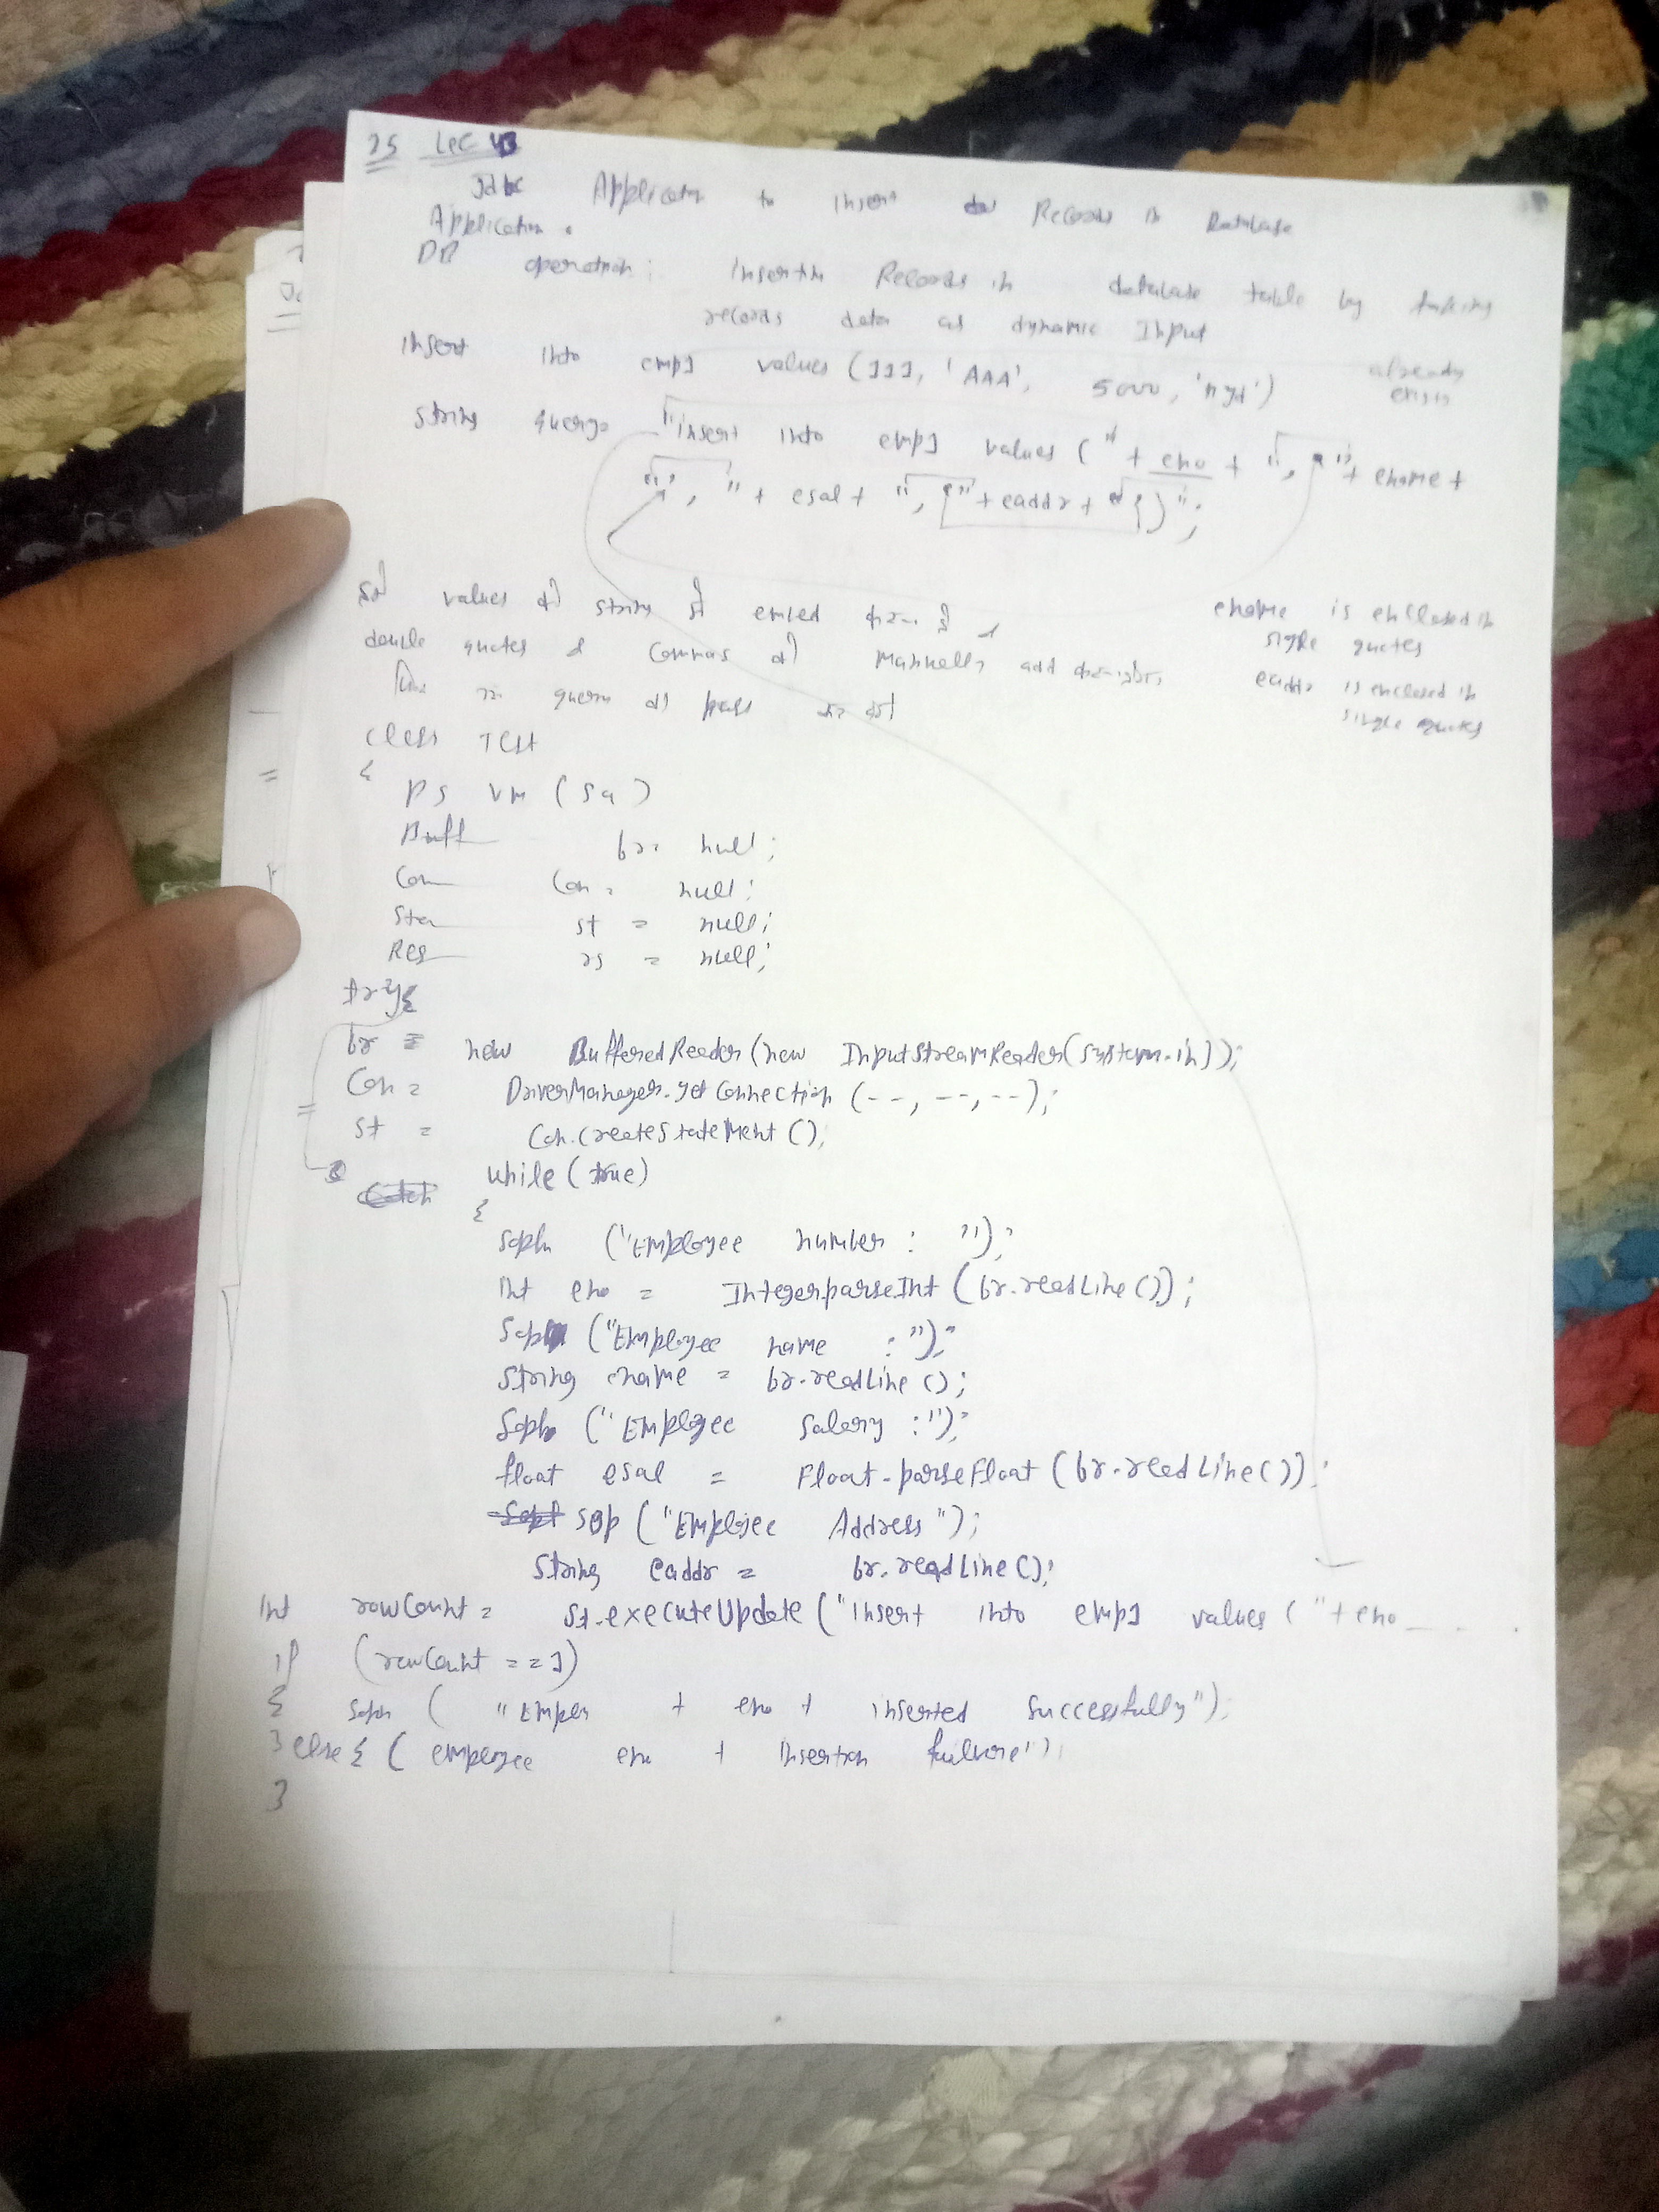 25 Lec 43
Jdbc Application to insert Records in Database
Application.
DB operation: Insertin Records in database table by taking
records data as dynamic Input
insert into emp1 values (111, 'AAA', 5000, 'hyd') already
exists
string query= "insert into emp1 values (" + eno + ", '" + ename +
"', " + esal + ", '" + eaddr + "')";
values string
ename is enclosed in
single quotes
double quotes & commas manually add
eaddr is enclosed in
single quotes
query pass
class Test
{
PS VM (Sa)
Buff br= null;
Con Con = null;
Sta st = null;
Res rs = null;
try{
br = new BufferedReader(new InputStreamReader(system.in));
Con = DriverManager.getConnection (--, --, --);
St = Con.createStatement();
while (true)
{
Sopln ("Employee number : ");
int eno = Integer.parseInt (br.readLine());
Sopln ("Employee name :");
String ename = br.readLine ();
Sopln ("Employee Salary :");
float esal = Float.parseFloat (br.readLine());
sop ("Employee Address");
String eaddr = br.readLine();
int rowCount = st.executeUpdate ("insert into emp1 values ("+eno
if (rowCount == 1)
{ Sopln ( "Emplen + eno + inserted successfully");
} else { ( employee eno + Insertion failure");
}